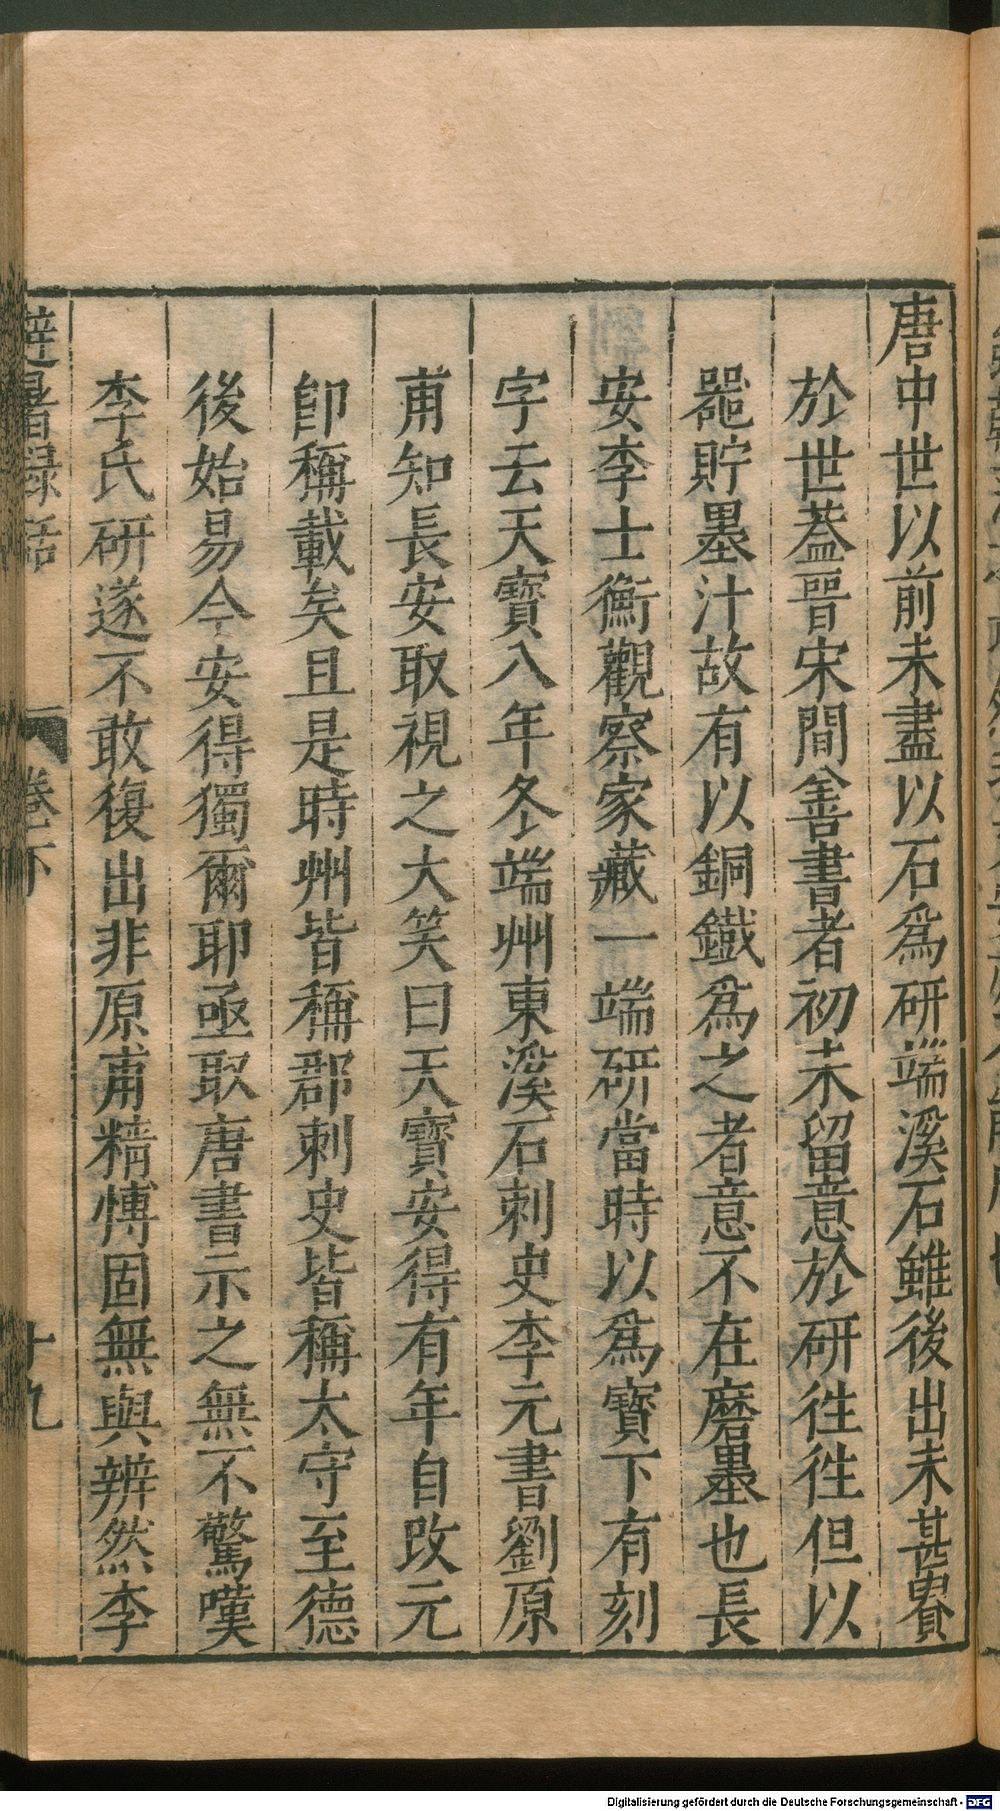 唐中世以前未盡以石爲研端溪石雖後出未甚貴
於世蓋晉宋間善書者初未留意於研往往但以
噐貯墨汁故有以銅鐵爲之者意不在磨墨也長
安李士衡觀察家藏一端研當時以爲寶下有刻
字云天寶八年冬端州東溪石刺史李元書劉原
甫知長安取視之大笑曰天寶安得有年自改元
卽稱載矣且是時州皆稱郡刺史皆稱太守至德
後始易今安得獨爾耶亟取唐書示之無不驚嘆
李氏研遂不敢復出非原甫精博固無與辨然李
避暑録話 卷下 十九
Digitalisierung gefördert durch die Deutsche Forschungsgemeinschaft - DFG